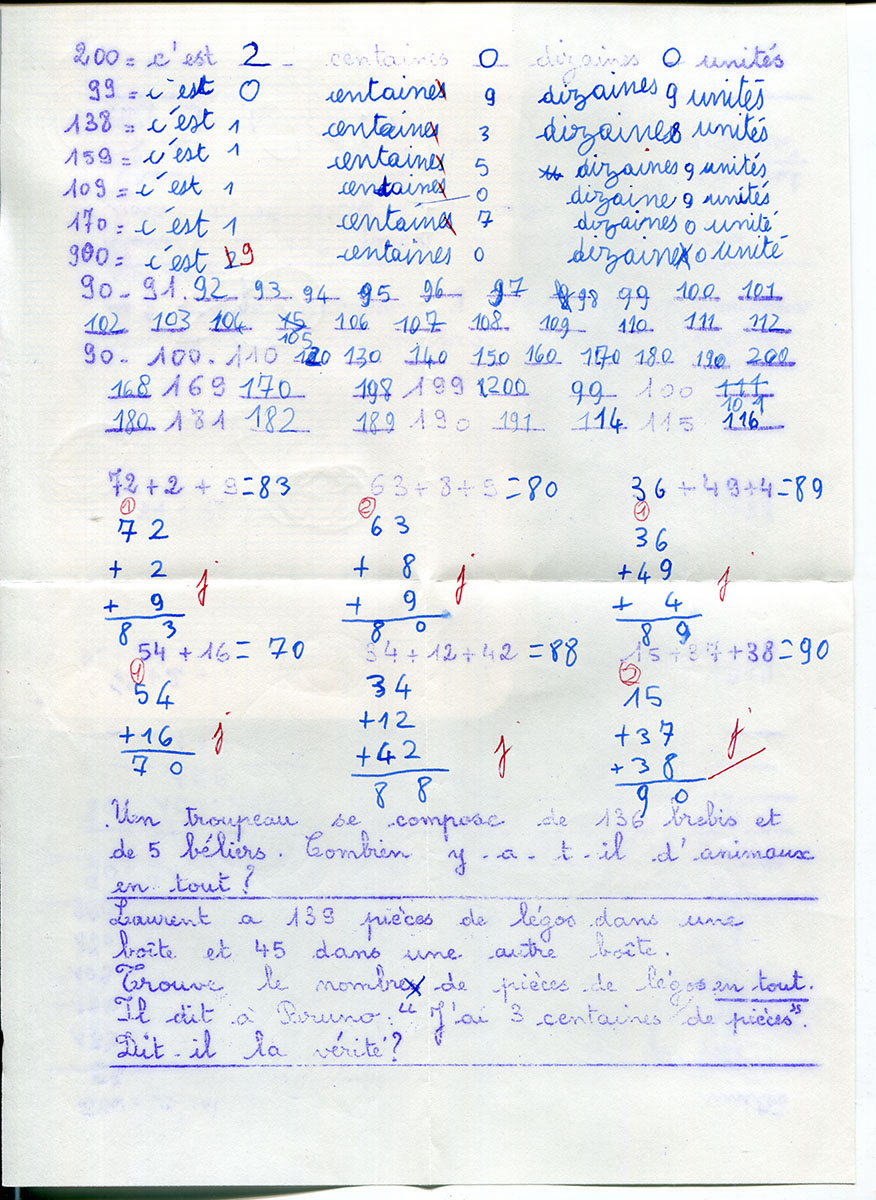 200 = c'est 2 centaines 0 dizaines 0 unités
99 = c'est 0 centaines 9 dizaines 9 unités
138 = c'est 1 centaines 3 dizaines 8 unités
159 = c'est 1 centaines 5 dizaines 9 unités
109 = c'est 1 centaines 0 dizaine 9 unités
170 = c'est 1 centaines 7 dizaines 0 unité
900 = c'est 9 centaines 0 dizaine 0 unité
90 - 91 . 92 93 94 95 96 97 98 99 100 101
102 103 104 105 106 107 108 109 110 111 112
90 - 100 - 110 120 130 140 150 160 170 180 190 200
168 169 170 198 199 1200 99 100 101
180 181 182 189 190 191 114 115 116
72 + 2 + 9 = 83 63 + 8 + 9 = 80 36 + 49 + 4 = 89
1 2 1
72 63 36
+ 2 + 8 + 49
+ 9 + 9 + 4
83 80 89
j j j
54 + 16 = 70 34 + 12 + 42 = 88 15 + 37 + 38 = 90
1 2
54 34 15
+16 +12 +37
70 +42 +38
88 90
j j j
Un troupeau se compose de 136 brebis et
de 5 béliers. Combien y-a-t-il d'animaux
en tout ?
Laurent a 139 pièces de légos dans une
boîte et 45 dans une autre boîte.
Trouve le nombre de pièces de légos en tout.
Il dit à Bruno : " J'ai 3 centaines de pièces ".
Dit-il la vérité ?